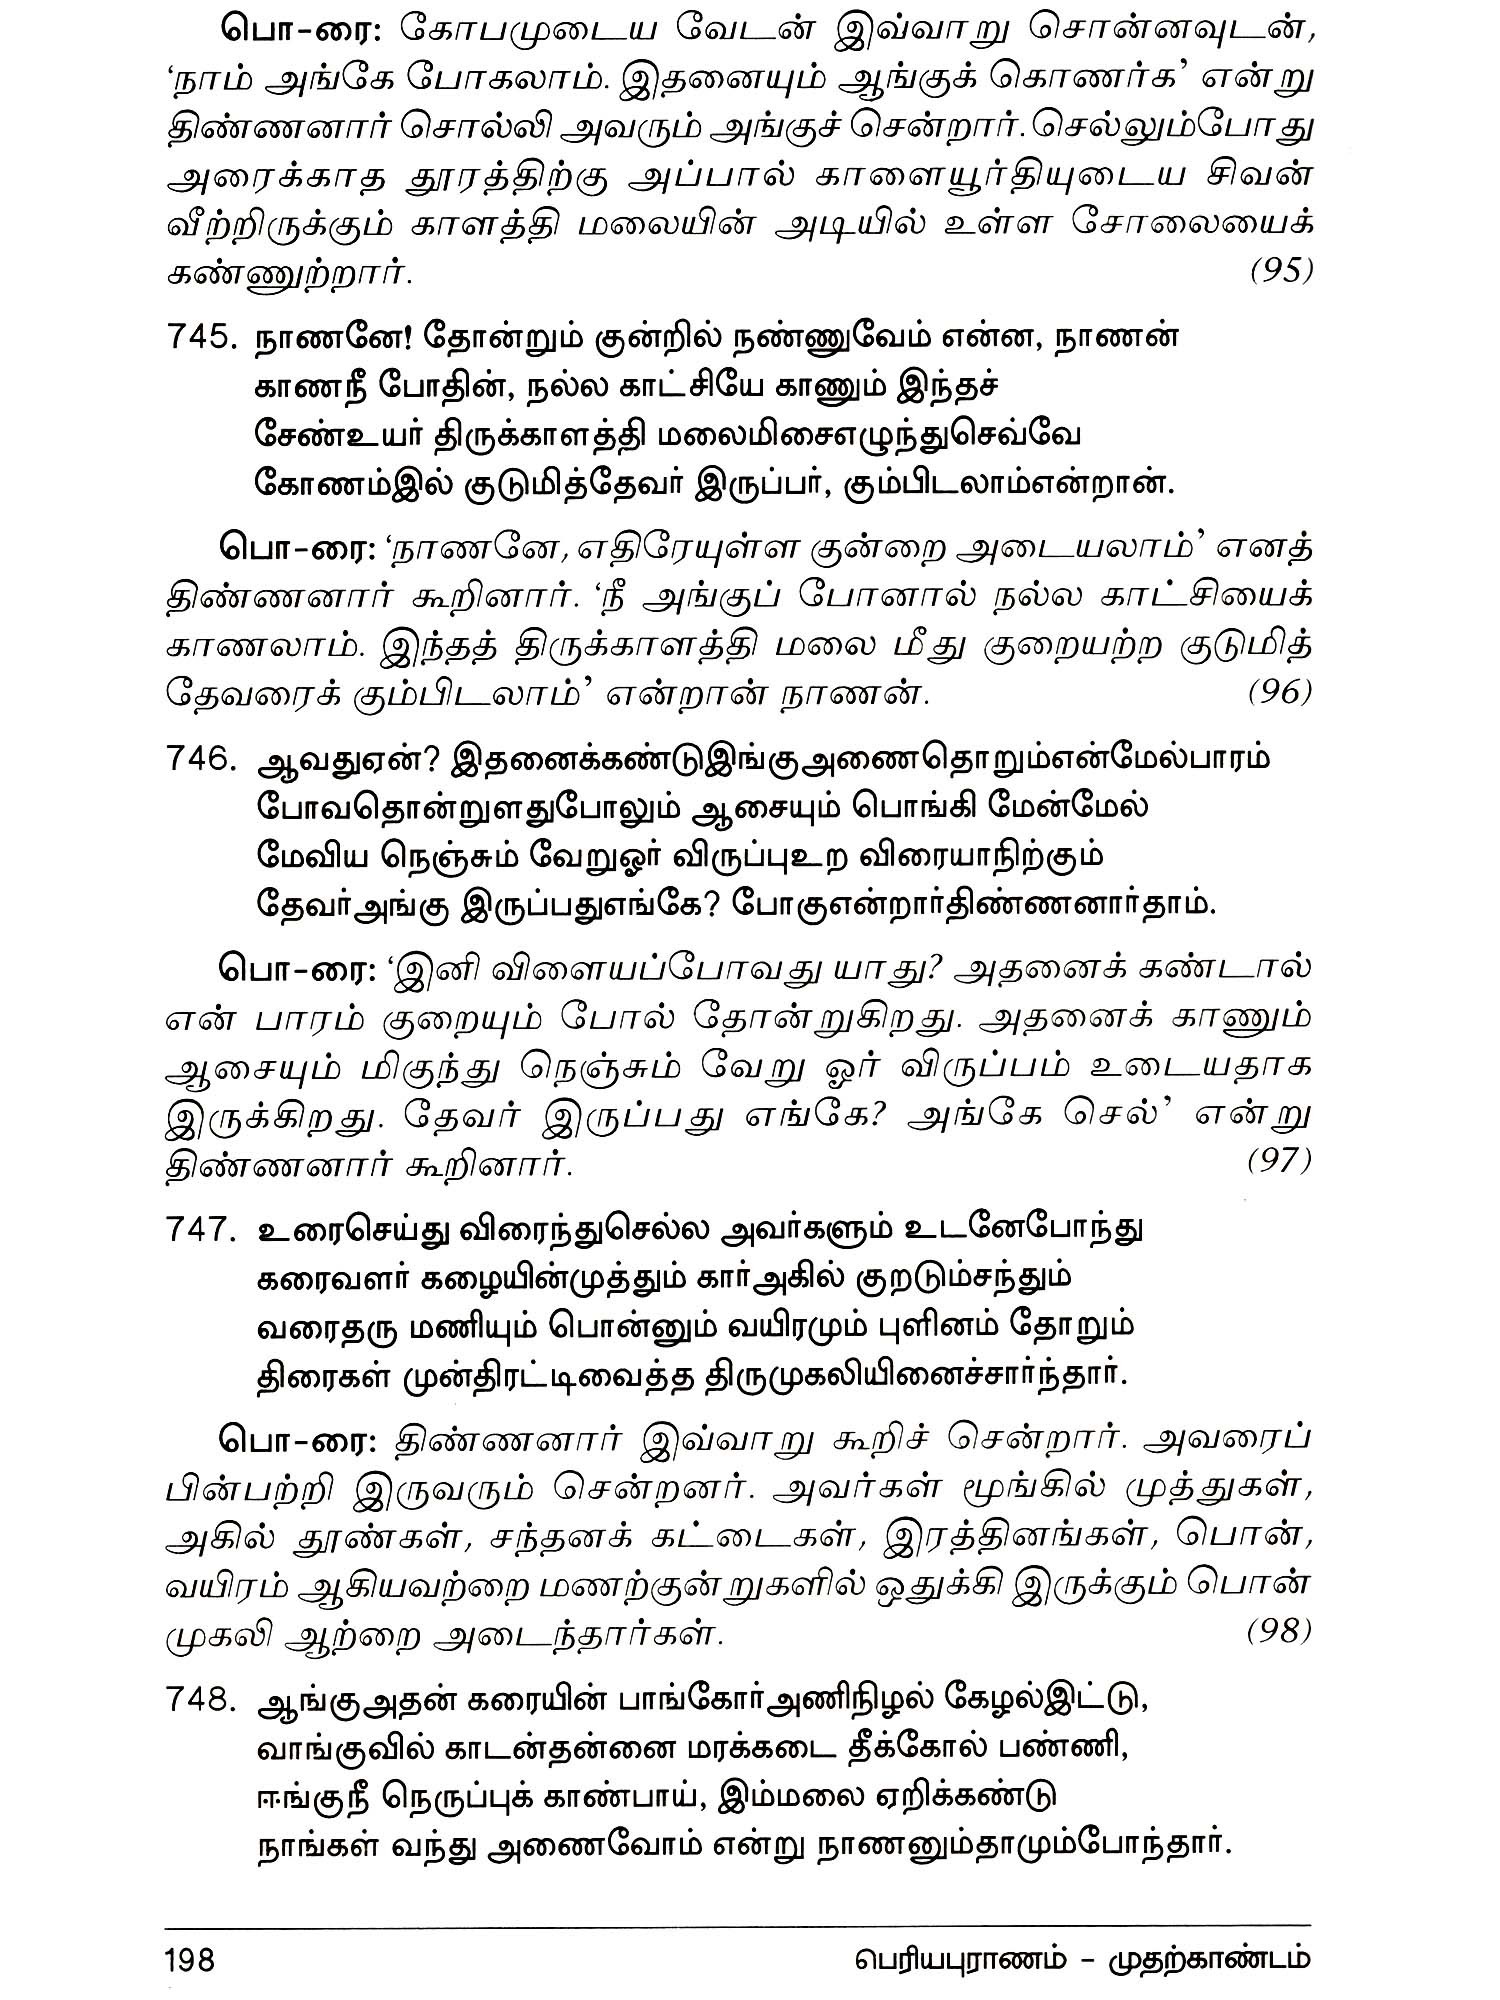 பொ-ரை: கோபமுடைய வேடன் இவ்வாறு சொன்னவுடன்,
‘நாம் அங்கே போகலாம். இதனையும் ஆங்குக் கொணர்க’ என்று
திண்ணனார் சொல்லி அவரும் அங்குச் சென்றார். செல்லும்போது
அரைக்காத தூரத்திற்கு அப்பால் காளையூர்தியுடைய சிவன்
வீற்றிருக்கும் காளத்தி மலையின் அடியில் உள்ள சோலையைக்
கண்ணுற்றார். (95)
745. நாணனே! தோன்றும் குன்றில் நண்ணுவேம் என்ன, நாணன்
காணநீ போதின், நல்ல காட்சியே காணும் இந்தச்
சேண்உயர் திருக்காளத்தி மலைமிசைஎழுந்துசெவ்வே
கோணம்இல் குடுமித்தேவர் இருப்பர், கும்பிடலாம்என்றான்.
பொ-ரை: ‘நாணனே, எதிரேயுள்ள குன்றை அடையலாம்’ எனத்
திண்ணனார் கூறினார். ‘நீ அங்குப் போனால் நல்ல காட்சியைக்
காணலாம். இந்தத் திருக்காளத்தி மலை மீது குறையற்ற குடுமித்
தேவரைக் கும்பிடலாம்’ என்றான் நாணன். (96)
746. ஆவதுஏன்? இதனைக்கண்டுஇங்குஅணைதொறும்என்மேல்பாரம்
போவதொன்றுளதுபோலும் ஆசையும் பொங்கி மேன்மேல்
மேவிய நெஞ்சும் வேறுஓர் விருப்புஉற விரையாநிற்கும்
தேவர்அங்கு இருப்பதுஎங்கே? போகுஎன்றார்திண்ணனார்தாம்.
பொ-ரை: ‘இனி விளையப்போவது யாது? அதனைக் கண்டால்
என் பாரம் குறையும் போல் தோன்றுகிறது. அதனைக் காணும்
ஆசையும் மிகுந்து நெஞ்சும் வேறு ஓர் விருப்பம் உடையதாக
இருக்கிறது. தேவர் இருப்பது எங்கே? அங்கே செல்’ என்று
திண்ணனார் கூறினார். (97)
747. உரைசெய்து விரைந்துசெல்ல அவர்களும் உடனேபோந்து
கரைவளர் கழையின்முத்தும் கார்அகில் குறடும்சந்தும்
வரைதரு மணியும் பொன்னும் வயிரமும் புளினம் தோறும்
திரைகள் முன்திரட்டிவைத்த திருமுகலியினைச்சார்ந்தார்.
பொ-ரை: திண்ணனார் இவ்வாறு கூறிச் சென்றார். அவரைப்
பின்பற்றி இருவரும் சென்றனர். அவர்கள் மூங்கில் முத்துகள்,
அகில் தூண்கள், சந்தனக் கட்டைகள், இரத்தினங்கள், பொன்,
வயிரம் ஆகியவற்றை மணற்குன்றுகளில் ஒதுக்கி இருக்கும் பொன்
முகலி ஆற்றை அடைந்தார்கள். (98)
748. ஆங்குஅதன் கரையின் பாங்கோர்அணிநிழல் கேழல்இட்டு,
வாங்குவில் காடன்தன்னை மரக்கடை தீக்கோல் பண்ணி,
ஈங்குநீ நெருப்புக் காண்பாய், இம்மலை ஏறிக்கண்டு
நாங்கள் வந்து அணைவோம் என்று நாணனும்தாமும்போந்தார்.
198 பெரியபுராணம் – முதற்காண்டம்